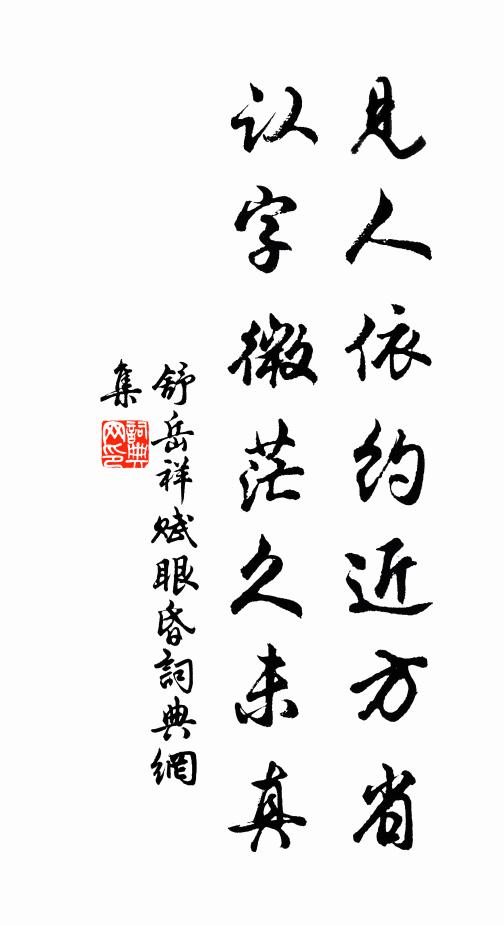 见人依约近方省
认字微茫久未真
舒岳祥赋眼昏詞典網
集
詞典网印